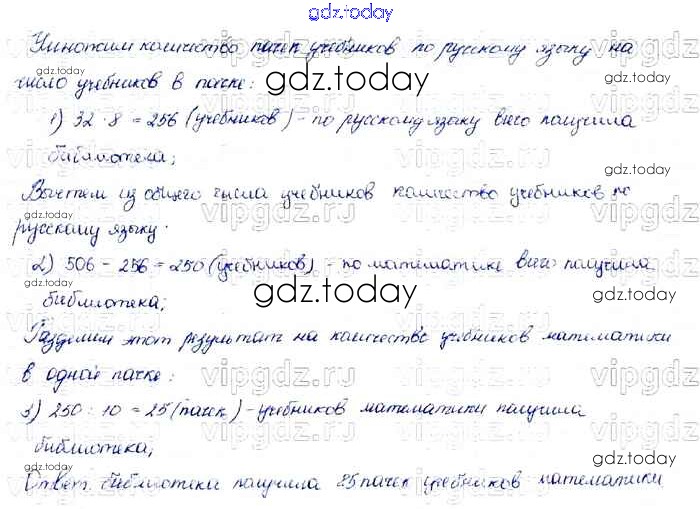 gdz.today
Умножим количество пачек учебников по русскому языку на
число учебников в пачке:
1) 32 · 8 = 256 (учебников) - по русскому языку всего получила
библиотека;
Вычтем из общего числа учебников количество учебников по
русскому языку.
2) 506 - 256 = 250 (учебников) - по математике всего получила
библиотека;
Разделим этот результат на количество учебников математики
в одной пачке:
3) 250 : 10 = 25 (пачек) - учебников математики получила
библиотека;
Ответ: библиотеки получила 25 пачек учебников математики